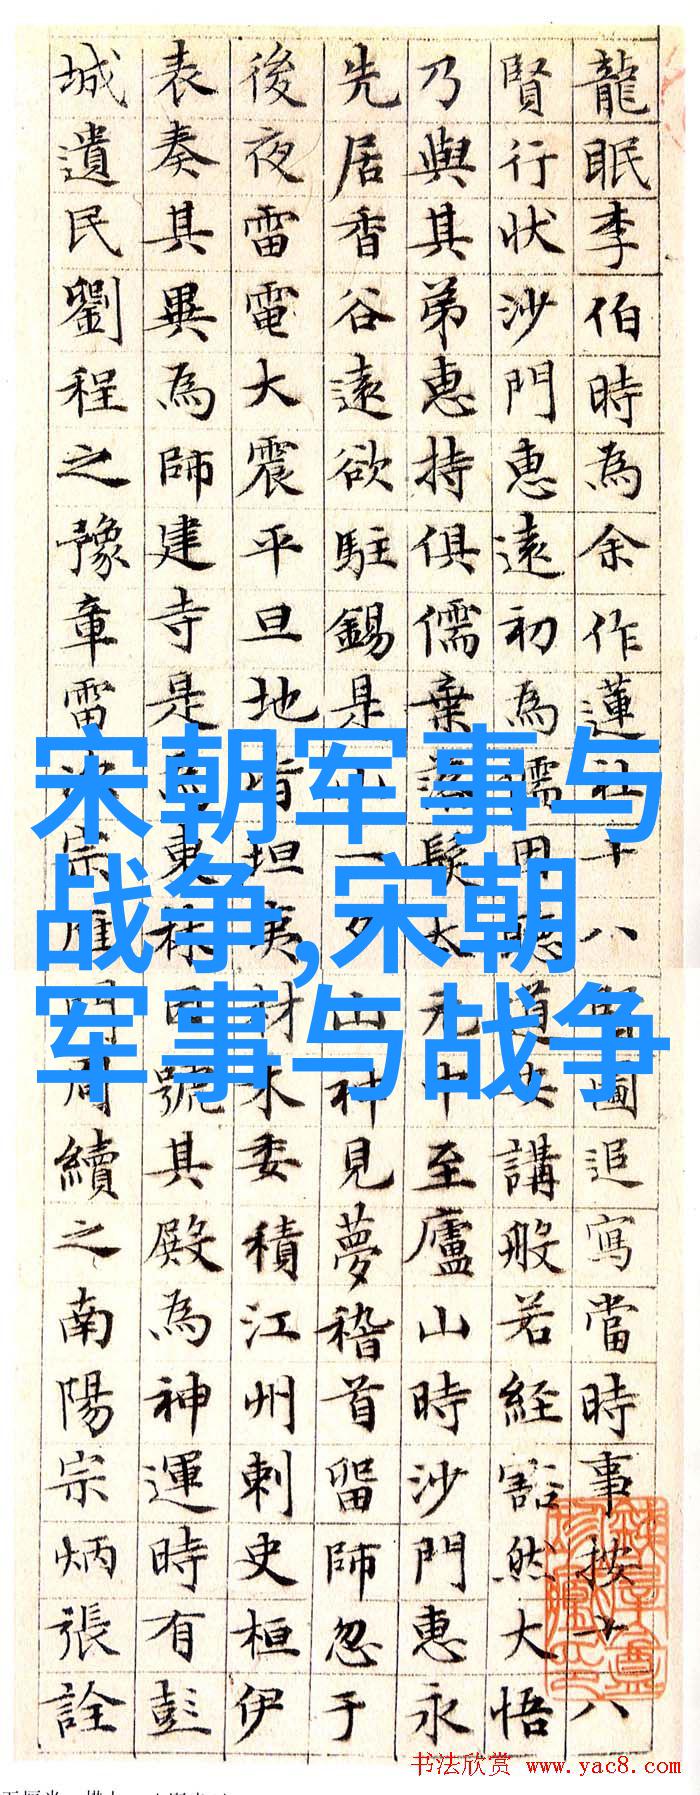 龍眠李伯時為余作蓮社十八賢圖追寫當時事按十八
賢行狀沙門惠遠初為儒因聽道安講般若經豁然大悟
乃與其弟惠持俱儒棄落髮太元中至廬山時沙門惠永
先居香谷遠欲駐錫是山一夕山神見夢稽首留師忽于
後夜雷電大震平旦地皆坦夷材木委積江州刺史桓伊
表奏其異為師建寺是為東林因號其殿為神運時有彭
城遺民劉程之豫章雷次宗雁門周續之南陽宗炳張詮
宋朝军事与
战争,宋朝
军事与战争
书法欣赏 www.yac8.com